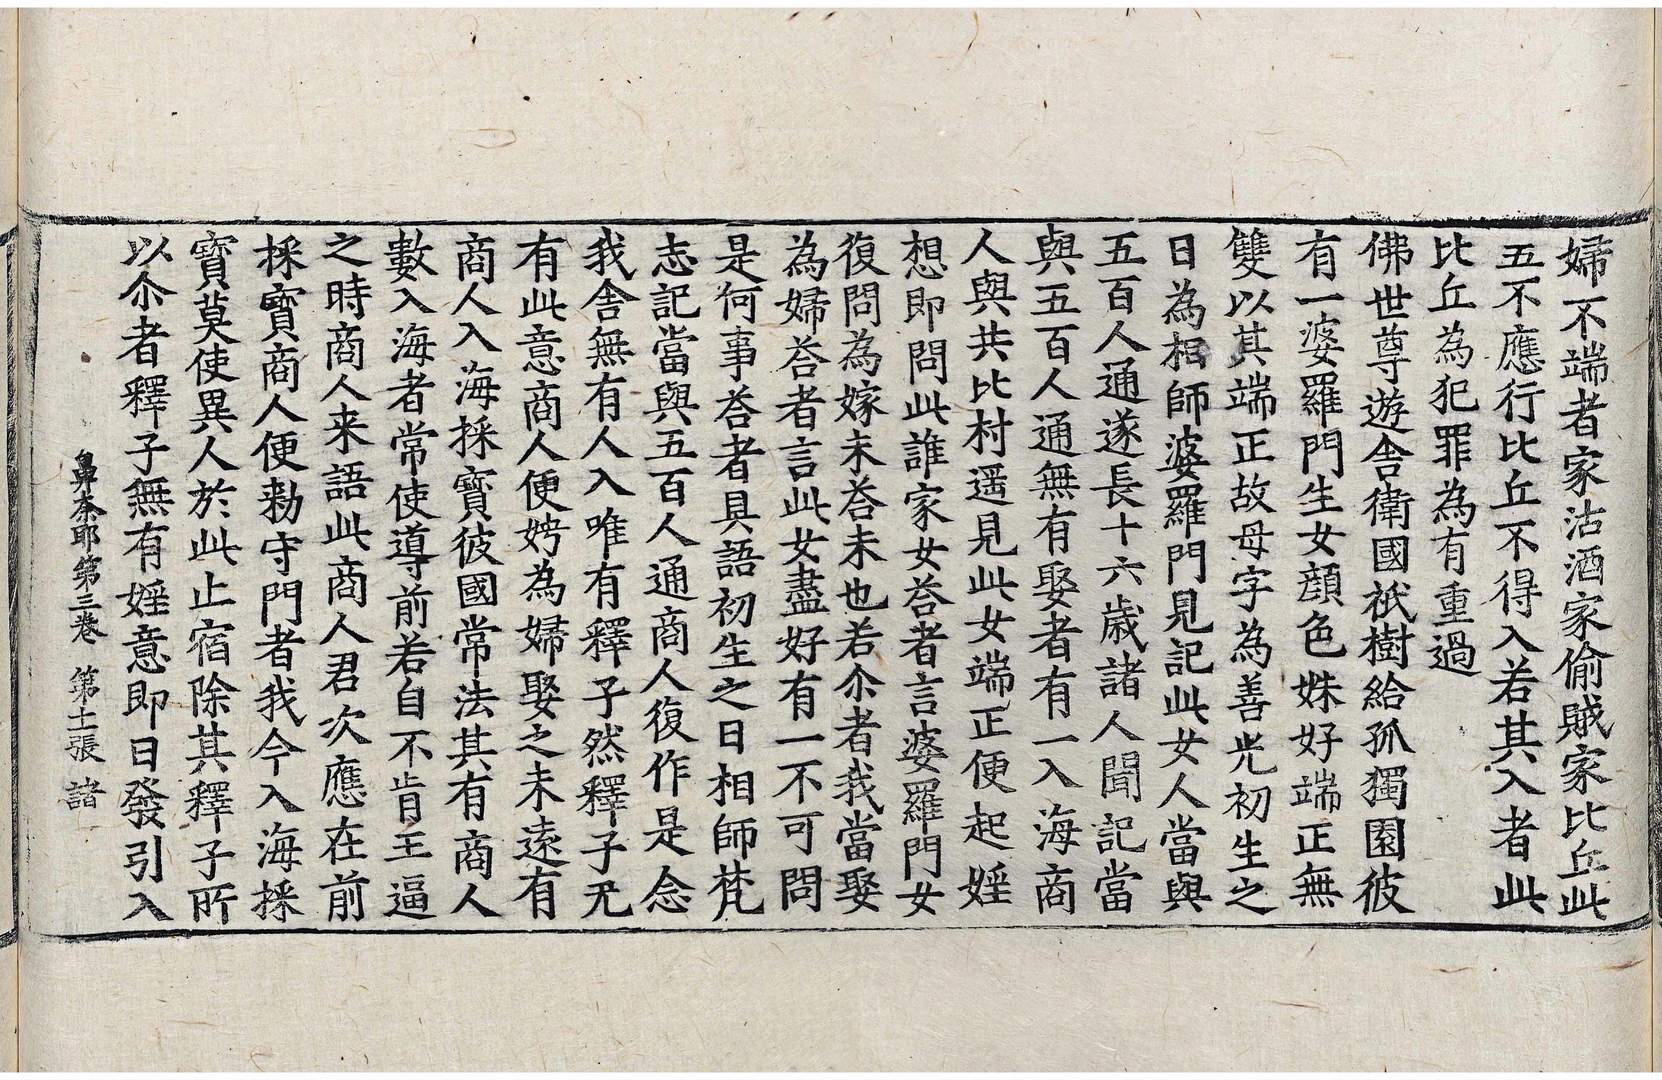 婦不端者家沽酒家偷賊家比丘此
五不應行比丘不得入若其入者此
比丘為犯罪為有重過
佛世尊遊舎衛國祇樹給孤獨園彼
有一婆羅門生女顔色姝好端正無
雙以其端正故母字為善光初生之
日為相師婆羅門見記此女人當與
五百人通遂長十六歲諸人聞記當
與五百人通無有娶者有一入海商
人與共比村遥見此女端正便起婬
想即問此誰家女荅者言婆羅門女
復問為嫁未荅未也若尒者我當娶
為婦荅者言此女盡好有一不可問
是何事荅者具語初生之日相師梵
志記當與五百人通商人復作是念
我舎無有人入唯有釋子然釋子无
有此意商人便娉為婦娶之未遠有
商人入海採寶彼國常法其有商人
數入海者常使導前若自不肯王逼
之時商人来語此商人君次應在前
採寶商人便勑守門者我今入海採
寶莫使異人於此止宿除其釋子所
以尒者釋子無有婬意即日發引入
鼻奈耶第三卷 第十一張 諸